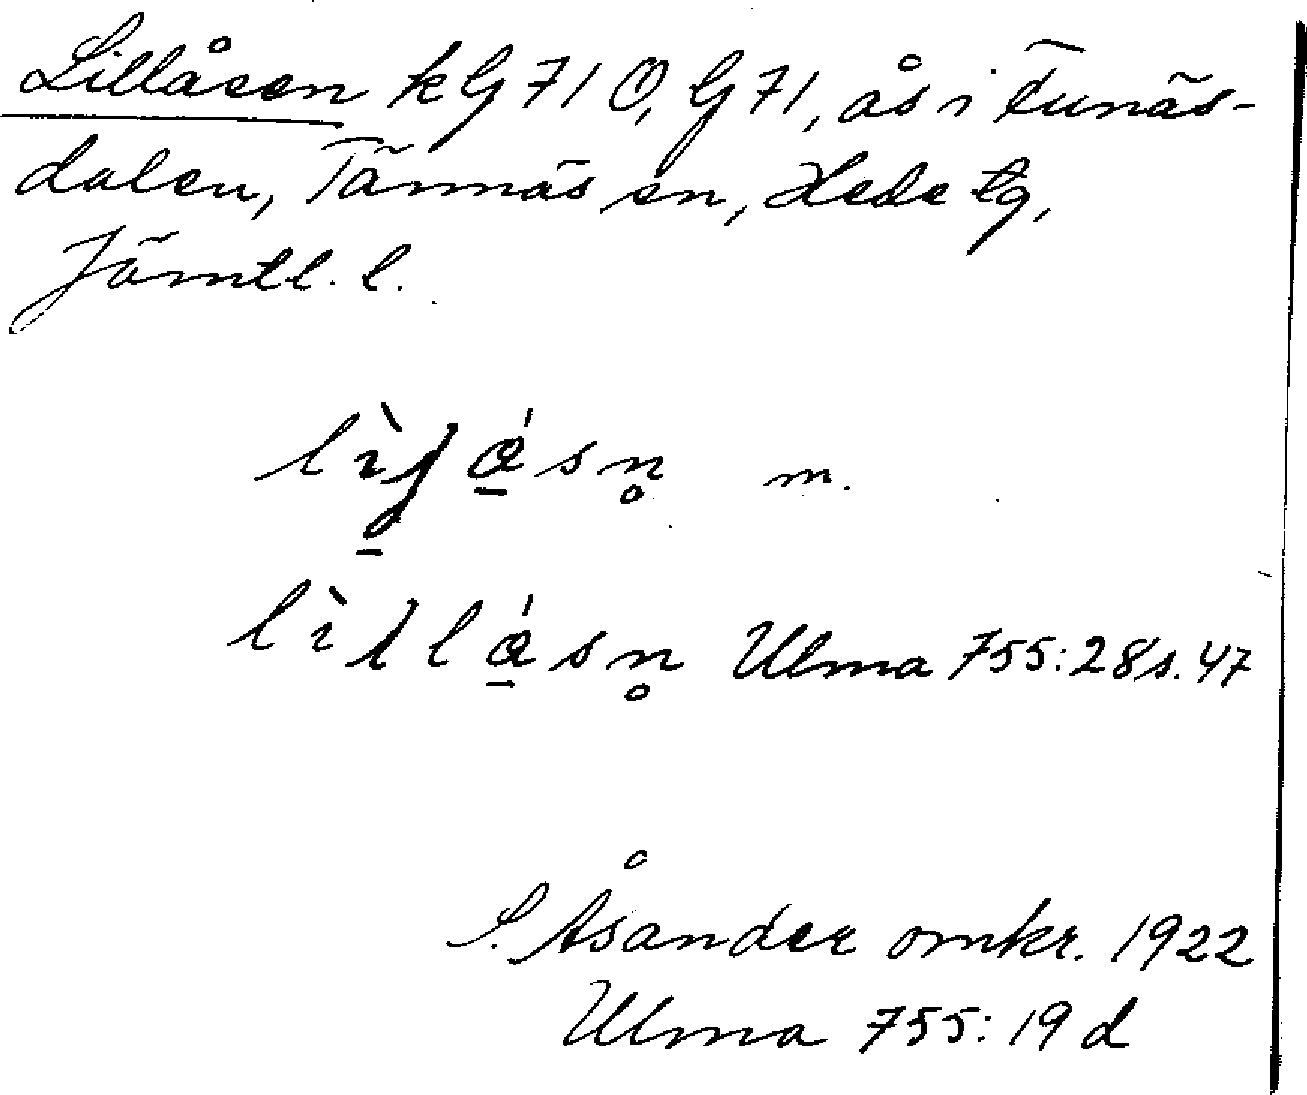 Lillåsen kG 71 Ö, G 71, ås i Funäs-
dalen, Tännäs sn, Hede tg,
Jämtl. l.
m.
Ulma 755:28 s. 47
S. Åsander omkr. 1922
Ulma 755:19 d